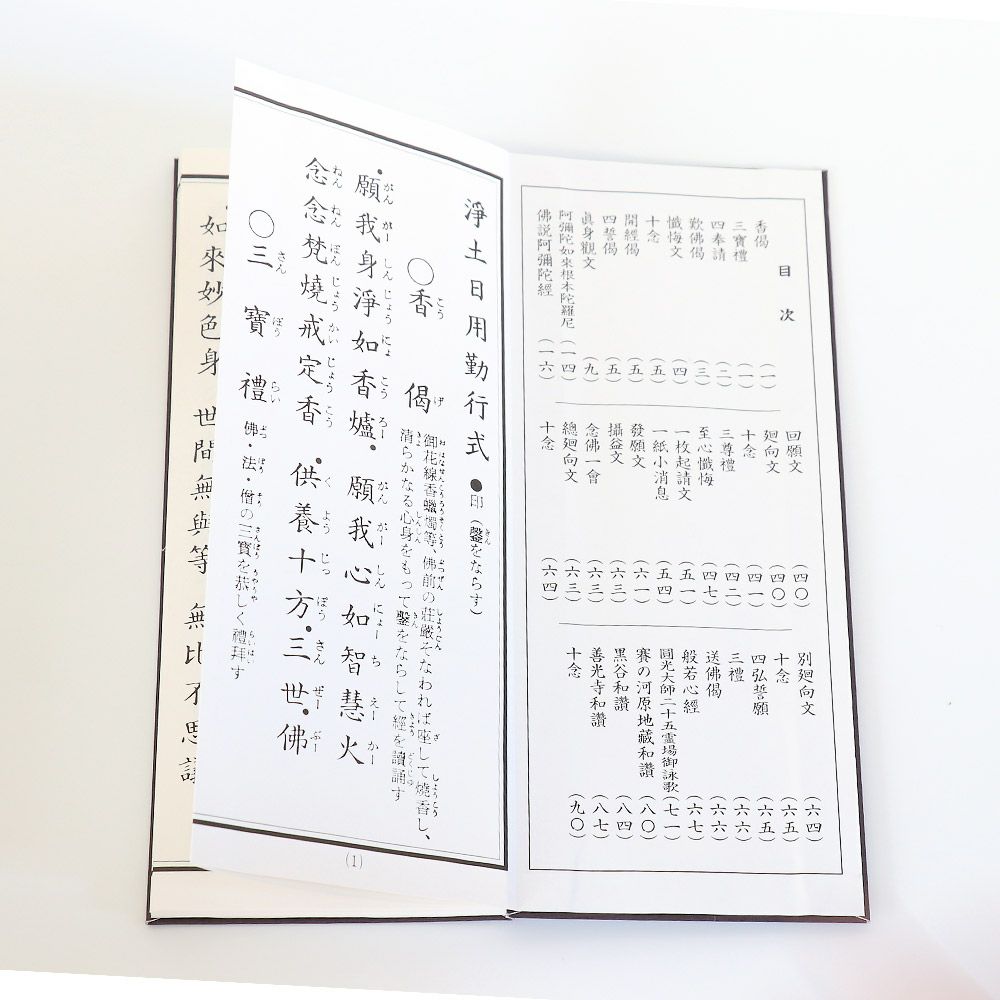 目次
香偈（一）
三寶禮（一）
四奉請（二）
歎佛偈（三）
懺悔文（四）
十念（五）
開經偈（五）
四誓偈（五）
眞身觀文（九）
阿彌陀如來根本陀羅尼（一四）
佛説阿彌陀經（一六）
回願文（四〇）
廻向文（四〇）
十念（四一）
三尊禮（四二）
至心懺悔（四七）
一枚起請文（五一）
一紙小消息（五四）
發願文（六一）
攝益文（六三）
念佛一會（六三）
總廻向文（六三）
十念（六四）
別廻向文（六四）
十念（六五）
四弘誓願（六五）
三禮（六六）
送佛偈（六六）
般若心經（六七）
圓光大師二十五霊場御詠歌（七一）
賽の河原地藏和讚（八〇）
黒谷和讚（八四）
善光寺和讚（八七）
十念（九〇）
淨土日用勤行式 ●印（鑿をならす）
○香偈 御花線香蠟燭等、佛前の莊嚴そなわれば座して燒香し、
清らかなる心身をもって鑿をならして經を讀誦す
願我身淨如香爐・願我心如智慧火
念念梵燒戒定香・供養十方・三世・佛
○三寶禮 佛・法・僧の三寶を恭しく禮拜す
(1)
如來妙色身 世間無與等 無比不思議